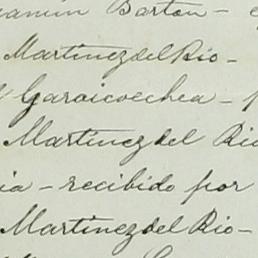 Barton -
Martinez del Rio -
Garaicoechea -
Martinez del Rio
ia - recibido por
Martinez del Rio -